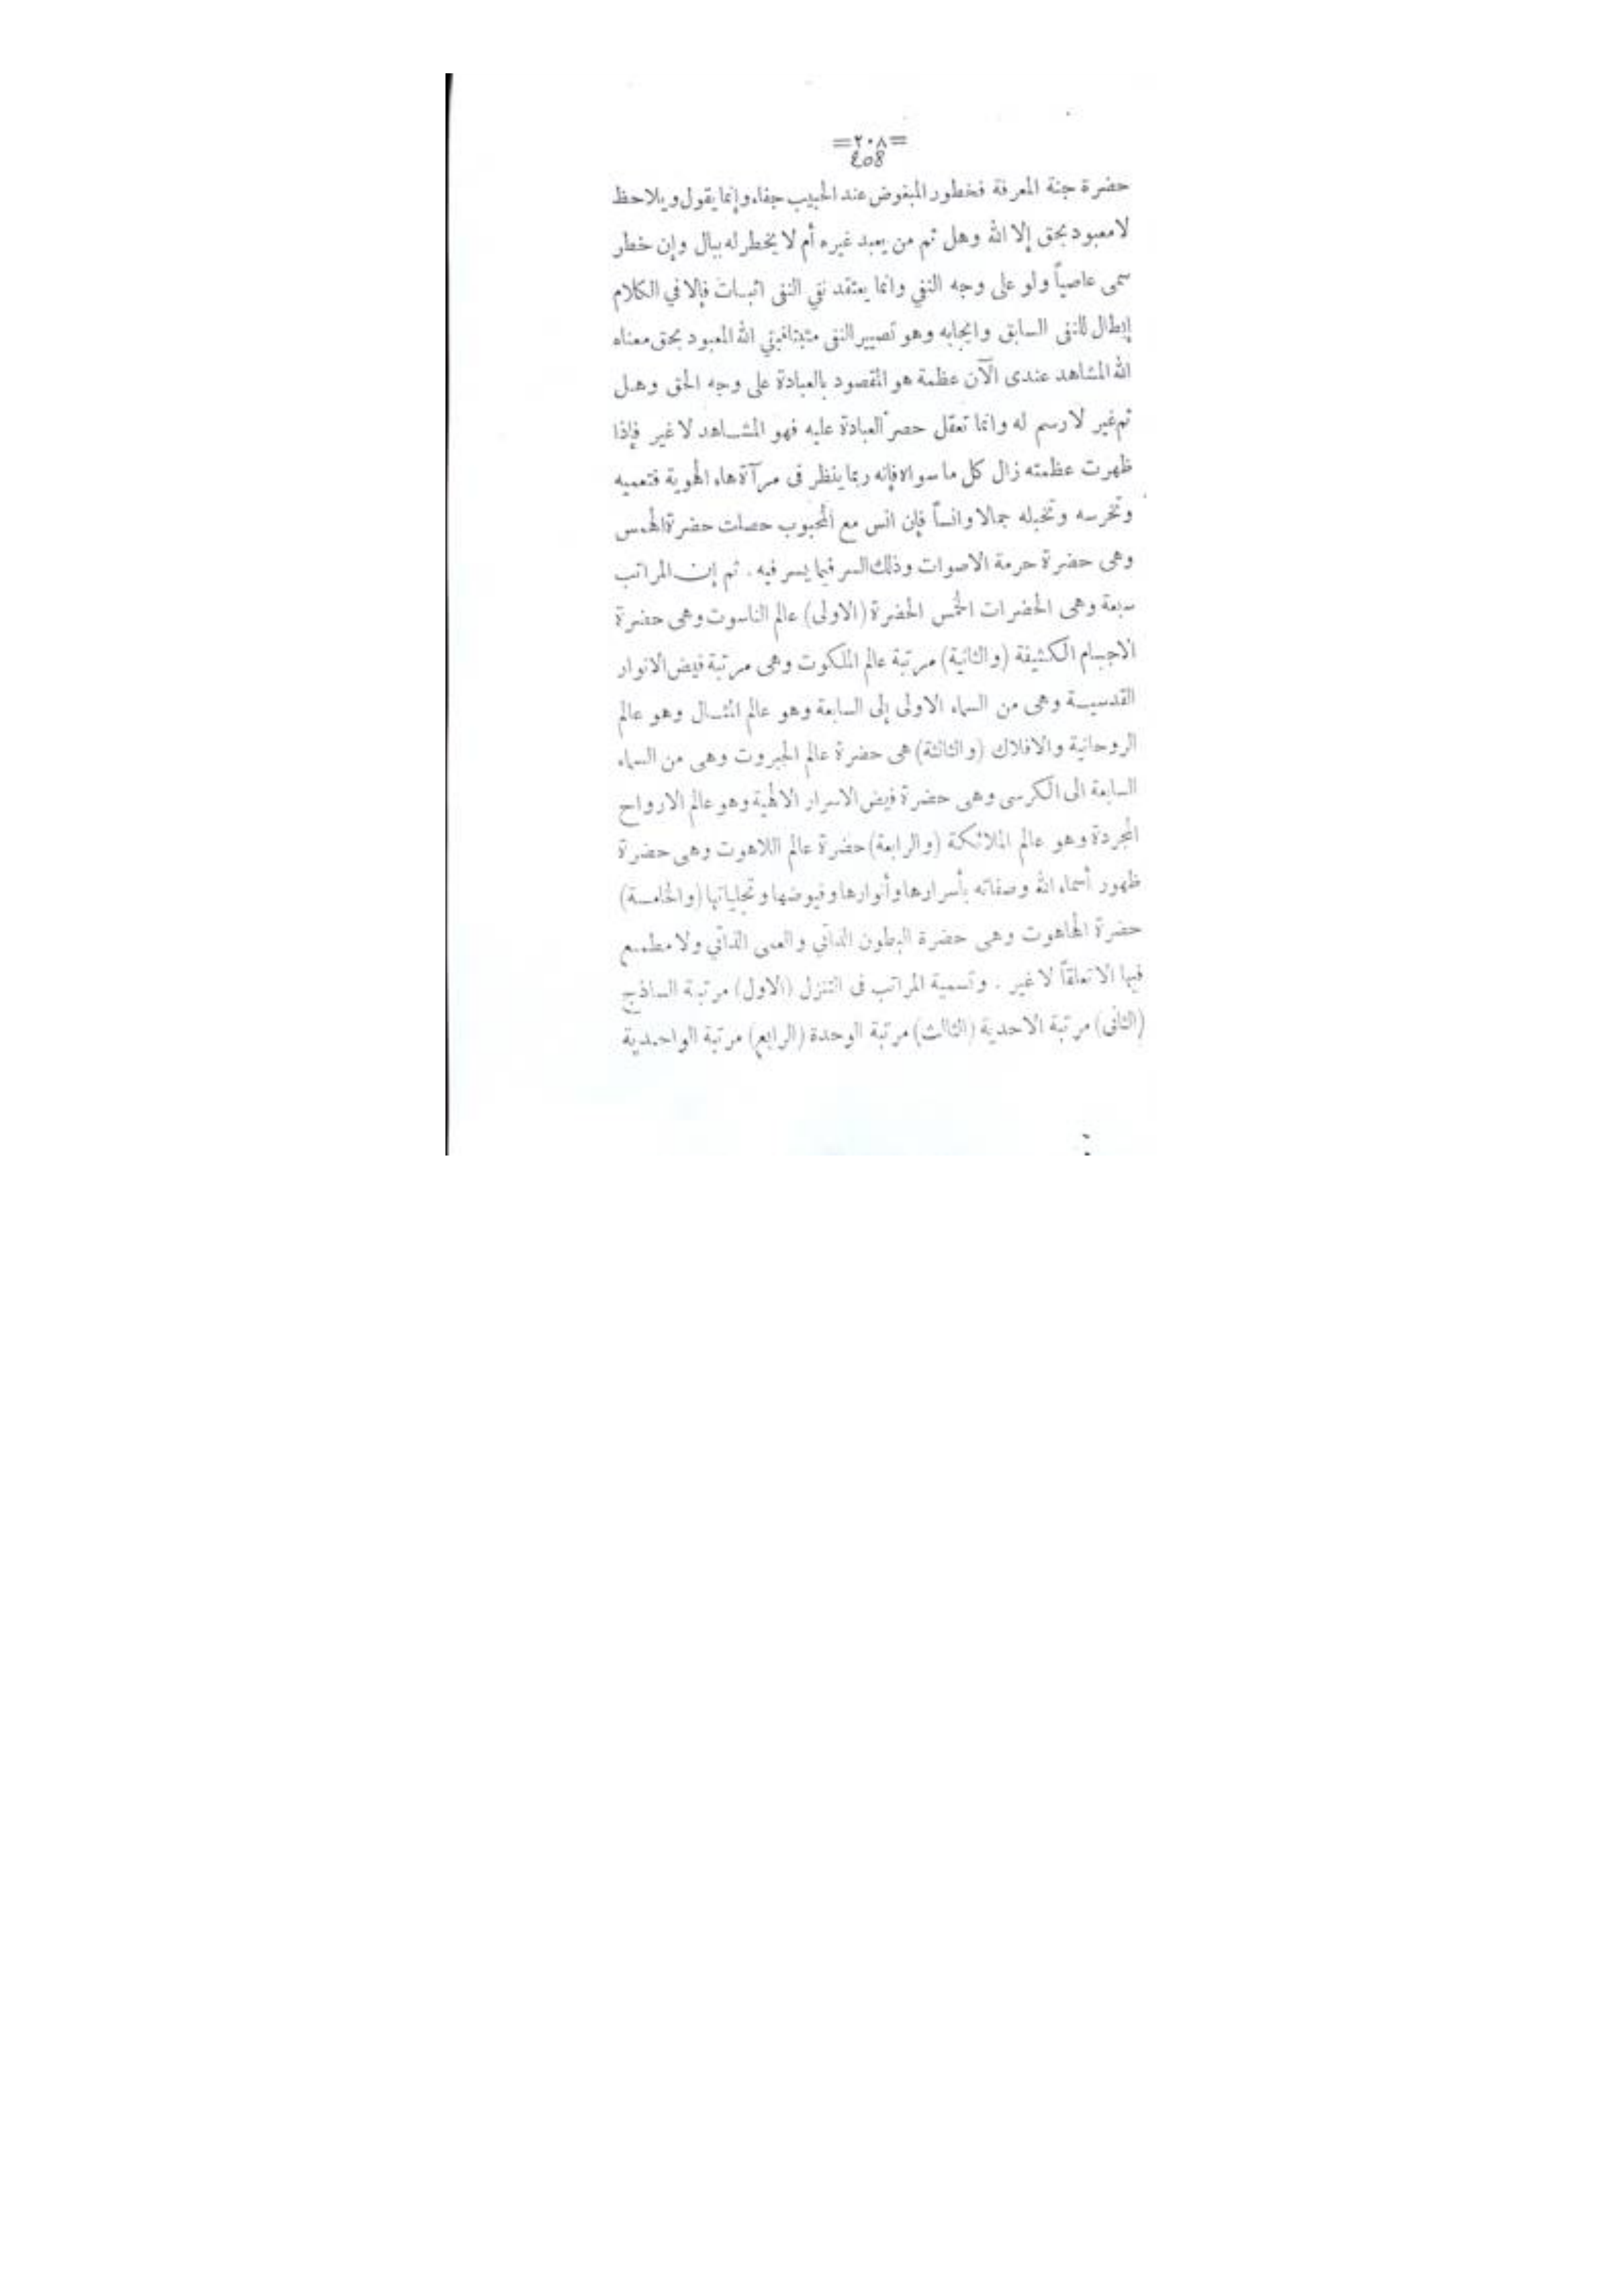 =٢٠٨=
408
حضرة جنة المعرفة فخطور المبغوض عند الحبيب جفاء وإنما يقول ويلاحظ
لا معبود بحق إلا الله وهل ثم من يعبد غيره أم لا يخطر له ببال وإن خطر
سمى عاصياً ولو على وجه النفي وانما يعتقد نفي النفى اثبات فإلا في الكلام
إبطال للنفى السابق وايجابه وهو تصيير النفى مثبتا فبقي الله المعبود بحق معناه
الله المشاهد عندى الآن عظمة هو المقصود بالعبادة على وجه الحق وهل
ثم غير لا رسم له وانما تعقل حصر العبادة عليه فهو المشاهد لا غير فإذا
ظهرت عظمته زال كل ما سواه فإنه ربما ينظر فى مرآة هاء الهوية فتعميه
وتخرسه وتخبله جمالا وانساً فإن انس مع المحبوب حصلت حضرة الهمس
وهى حضرة حرمة الاصوات وذلك السر فيما يسر فيه . ثم إن المراتب
سبعة وهى الحضرات الخمس الحضرة (الاولى) عالم الناسوت وهى حضرة
الاجسام الكثيفة (والثانية) مرتبة عالم الملكوت وهى مرتبة فيض الانوار
القدسية وهى من السماء الاولى إلى السابعة وهو عالم المثال وهو عالم
الروحانية والافلاك (والثالثة) هى حضرة عالم الجبروت وهى من السماء
السابعة الى الكرسى وهى حضرة فيض الاسرار الالهية وهو عالم الارواح
المجردة وهو عالم الملائكة (والرابعة) حضرة عالم اللاهوت وهى حضرة
ظهور أسماء الله وصفاته بأسرارها وأنوارها وفيوضها وتجلياتها (والخامسة)
حضرة الهاهوت وهى حضرة البطون الذاتي والعمى الذاتي ولا مطمع
فيها الا تعلقاً لا غير . وتسمية المراتب فى التنزل (الاول) مرتبة الساذج
(الثانى) مرتبة الاحدية (الثالث) مرتبة الوحدة (الرابع) مرتبة الواحدية